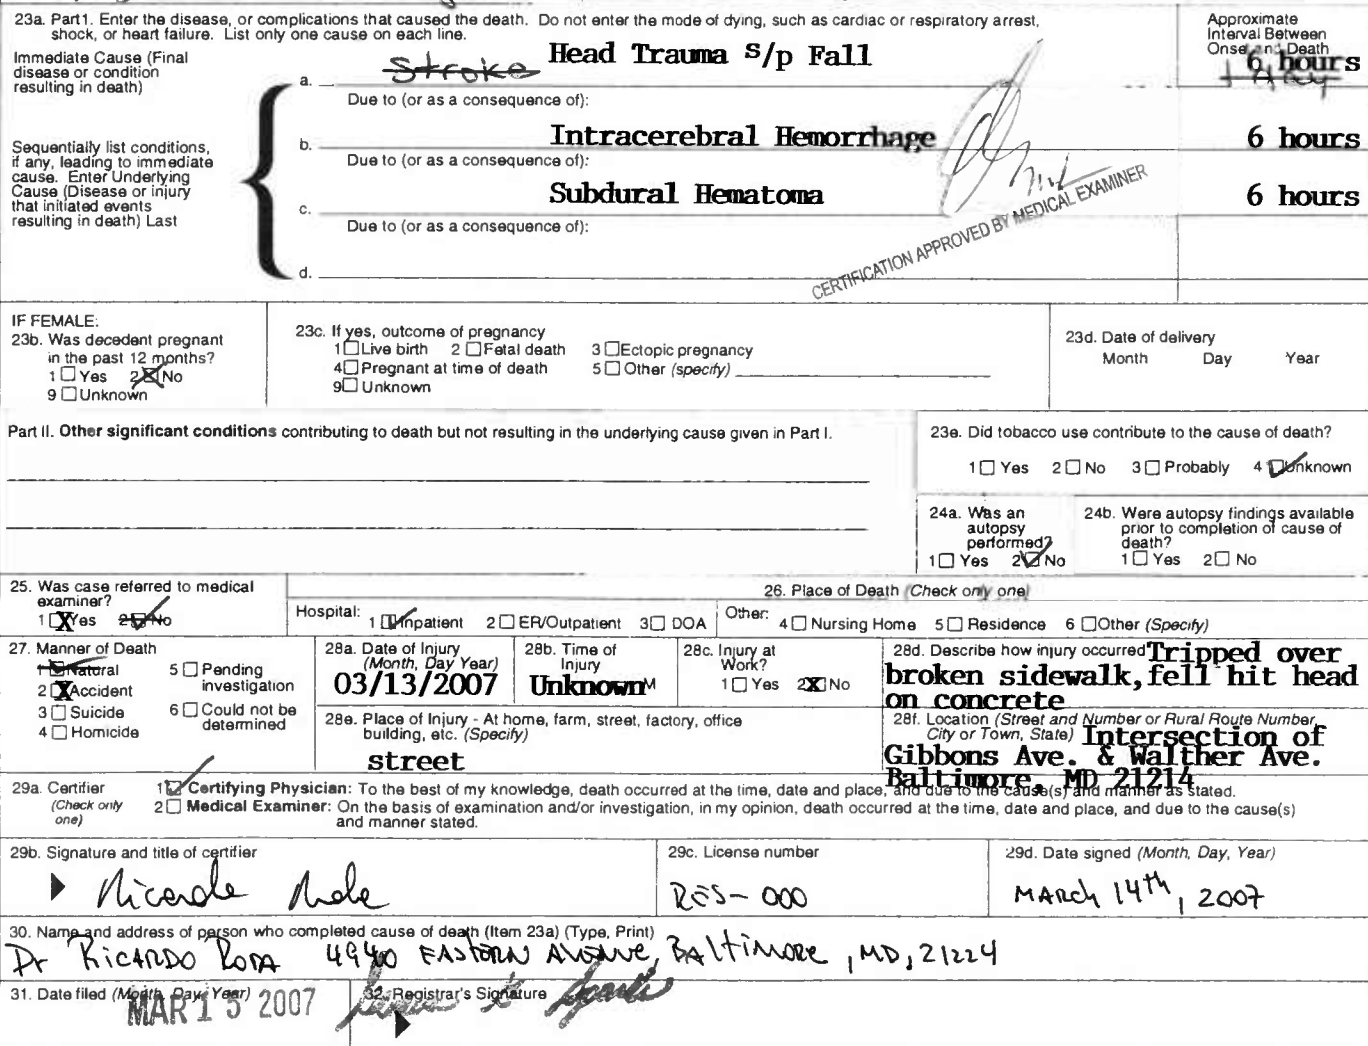 23a. Part1. Enter the disease, or complications that caused the death. Do not enter the mode of dying, such as cardiac or respiratory arrest,
shock, or heart failure. List only one cause on each line.
Approximate
Interval Between
Onset and Death
Immediate Cause (Final
disease or condition
resulting in death)
a. Stroke Head Trauma s/p Fall 6 hours
1 day
Due to (or as a consequence of):
Sequentially list conditions,
if any, leading to immediate
cause. Enter Underlying
Cause (Disease or injury
that initiated events
resulting in death) Last
b. Intracerebral Hemorrhage 6 hours
Due to (or as a consequence of):
c. Subdural Hematoma 6 hours
Due to (or as a consequence of):
d.
CERTIFICATION APPROVED BY MEDICAL EXAMINER
IF FEMALE:
23b. Was decedent pregnant
in the past 12 months?
1 Yes 2 No
9 Unknown
23c. If yes, outcome of pregnancy
1 Live birth 2 Fetal death 3 Ectopic pregnancy
4 Pregnant at time of death 5 Other (specify)
9 Unknown
23d. Date of delivery
Month Day Year
Part II. Other significant conditions contributing to death but not resulting in the underlying cause given in Part I.
23e. Did tobacco use contribute to the cause of death?
1 Yes 2 No 3 Probably 4 Unknown
24a. Was an
autopsy
performed?
1 Yes 2 No
24b. Were autopsy findings available
prior to completion of cause of
death?
1 Yes 2 No
25. Was case referred to medical
examiner?
1 X Yes 2 No
26. Place of Death (Check only one)
Hospital: 1 Inpatient 2 ER/Outpatient 3 DOA Other: 4 Nursing Home 5 Residence 6 Other (Specify)
27. Manner of Death
1 Natural 5 Pending
investigation
2 X Accident
3 Suicide 6 Could not be
determined
4 Homicide
28a. Date of Injury
(Month, Day Year)
03/13/2007
28b. Time of
Injury
Unknown M
28c. Injury at
Work?
1 Yes 2 X No
28d. Describe how injury occurred Tripped over
broken sidewalk, fell hit head
on concrete
28e. Place of Injury - At home, farm, street, factory, office
building, etc. (Specify)
street
28f. Location (Street and Number or Rural Route Number,
City or Town, State) Intersection of
Gibbons Ave. & Walther Ave.
Baltimore, MD 21214
29a. Certifier
(Check only
one)
1 Certifying Physician: To the best of my knowledge, death occurred at the time, date and place, and due to the cause(s) and manner as stated.
2 Medical Examiner: On the basis of examination and/or investigation, in my opinion, death occurred at the time, date and place, and due to the cause(s)
and manner stated.
29b. Signature and title of certifier
29c. License number
RES-000
29d. Date signed (Month, Day, Year)
MARCH 14th, 2007
30. Name and address of person who completed cause of death (Item 23a) (Type, Print)
Dr RICARDO 4940 EASTERN AVENUE, BALTIMORE, MD, 21224
31. Date filed (Month, Day, Year)
MAR 15 2007
32. Registrar's Signature